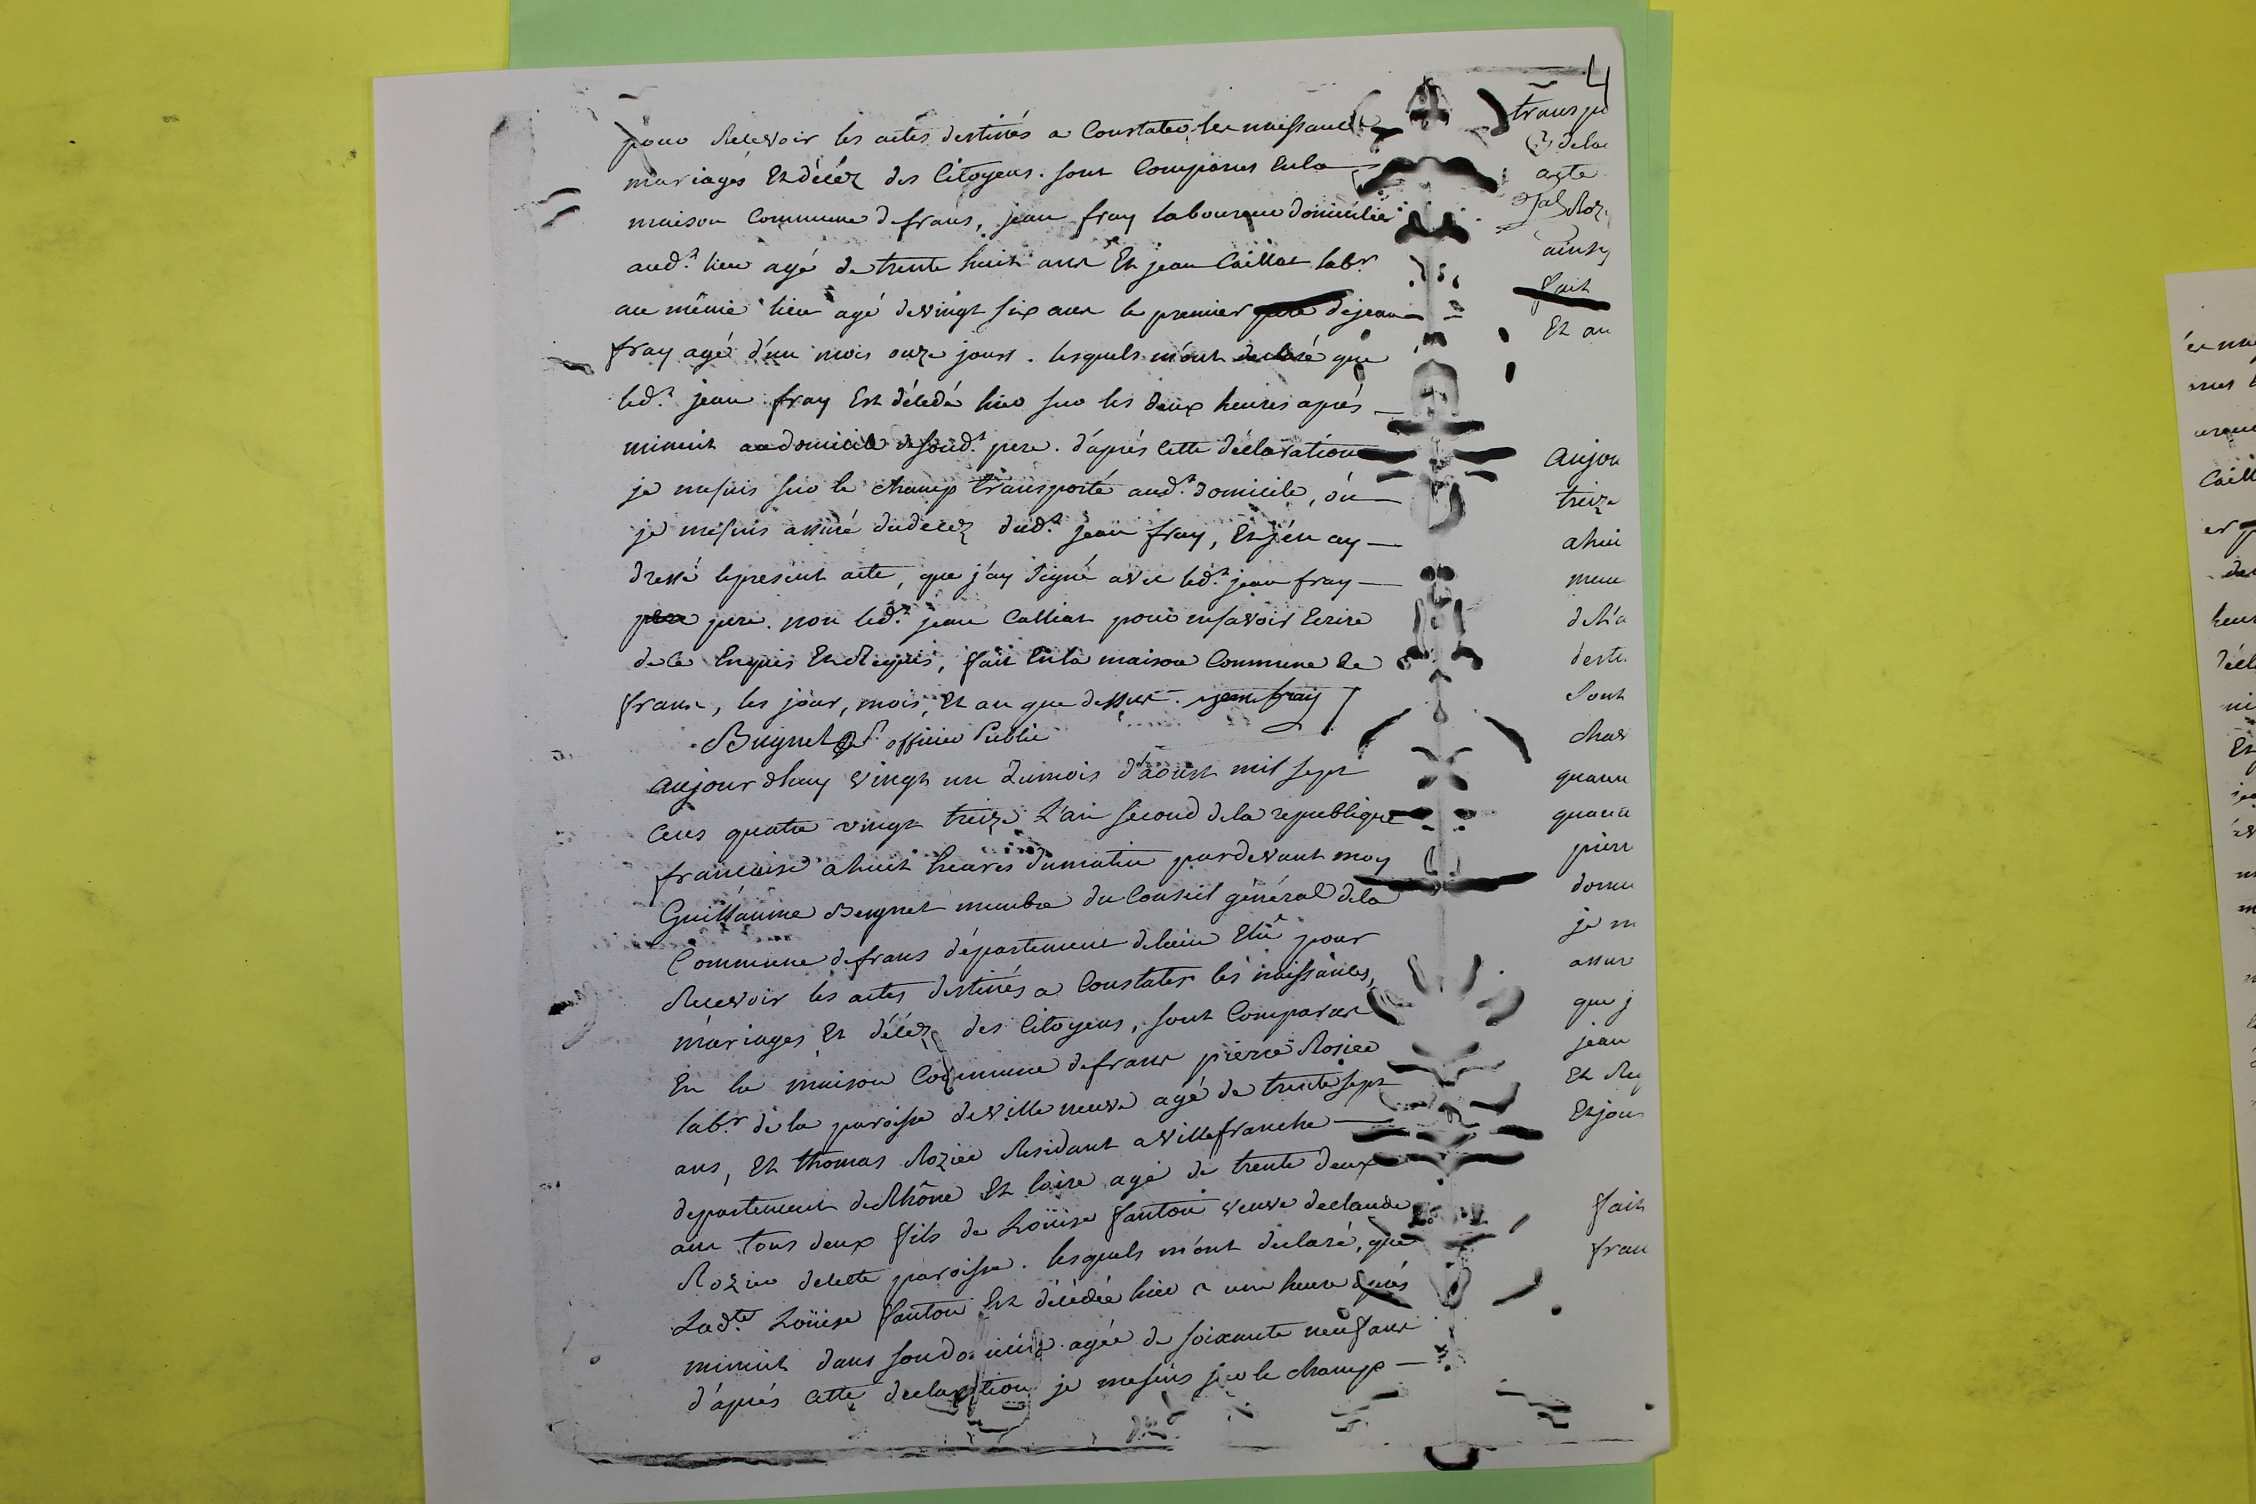 4
pour Recevoir les actes destinés a Constater les naissances
mariages Et décéz des Citoyens. sont Comparus En la
maison Commune de frans, jean fray laboureur domicilié
aud.t lieu agé de trente huit ans Et jean Caillat lab.r
au même lieu agé de vingt six ans le premier pere de jean
fray agé d'un mois onze jours. lesquels m'ont declaré que
led.t jean fray Est décédé hier sur les deux heures aprés
minuit au domicile de sond.t pere. d'aprés cette déclaration
je me suis sur le champ transporté aud.t domicile, ou
je me suis assuré du decez dud.t jean fray, Et j'en ay
dressé le present acte, que j'ay signé avec led.t jean fray
pere pere. non led.t jean Calliat pour ne savoir Ecrire
de ce Enquis Et Requis, fait En la maison Commune de
frans, les jour, mois, Et an que dessus. jean fray
Buynet officier Public
aujourdhuy vingt un du mois d'aoust mil sept
cens quatre vingt treize L'an second de la republique
francaise a huit heures du matin pardevant moy
Guillaume Buynet membre du Conseil général de la
Commune de frans département de l'ain Elu pour
Recevoir les actes destinés a Constater les naissances,
mariages Et décéz des Citoyens, sont Comparus
En la maison Commune de frans pierre Rozier
lab.r de la paroisse de villeneuve agé de trente sept
ans, Et thomas Rozier Residant a villefranche
departement de Rhône Et loire agé de trente deux
ans tous deux fils de Louise fanton veuve de claude
Rozier de cette paroisse. lesquels m'ont declaré, que
Lad.te Louise fanton Est décédée hier a une heure aprés
minuit dans son domicile agée de soixante neuf ans
d'aprés cette declaration je me suis sur le champ
transpo
de la
acte
Roz
ainsy
fait
Et an
aujou
treize
a hui
mem
desti
Sont
quara
quara
pierr
domi
je m
assur
que j
jean
Et Req
Et jour
fait
fran